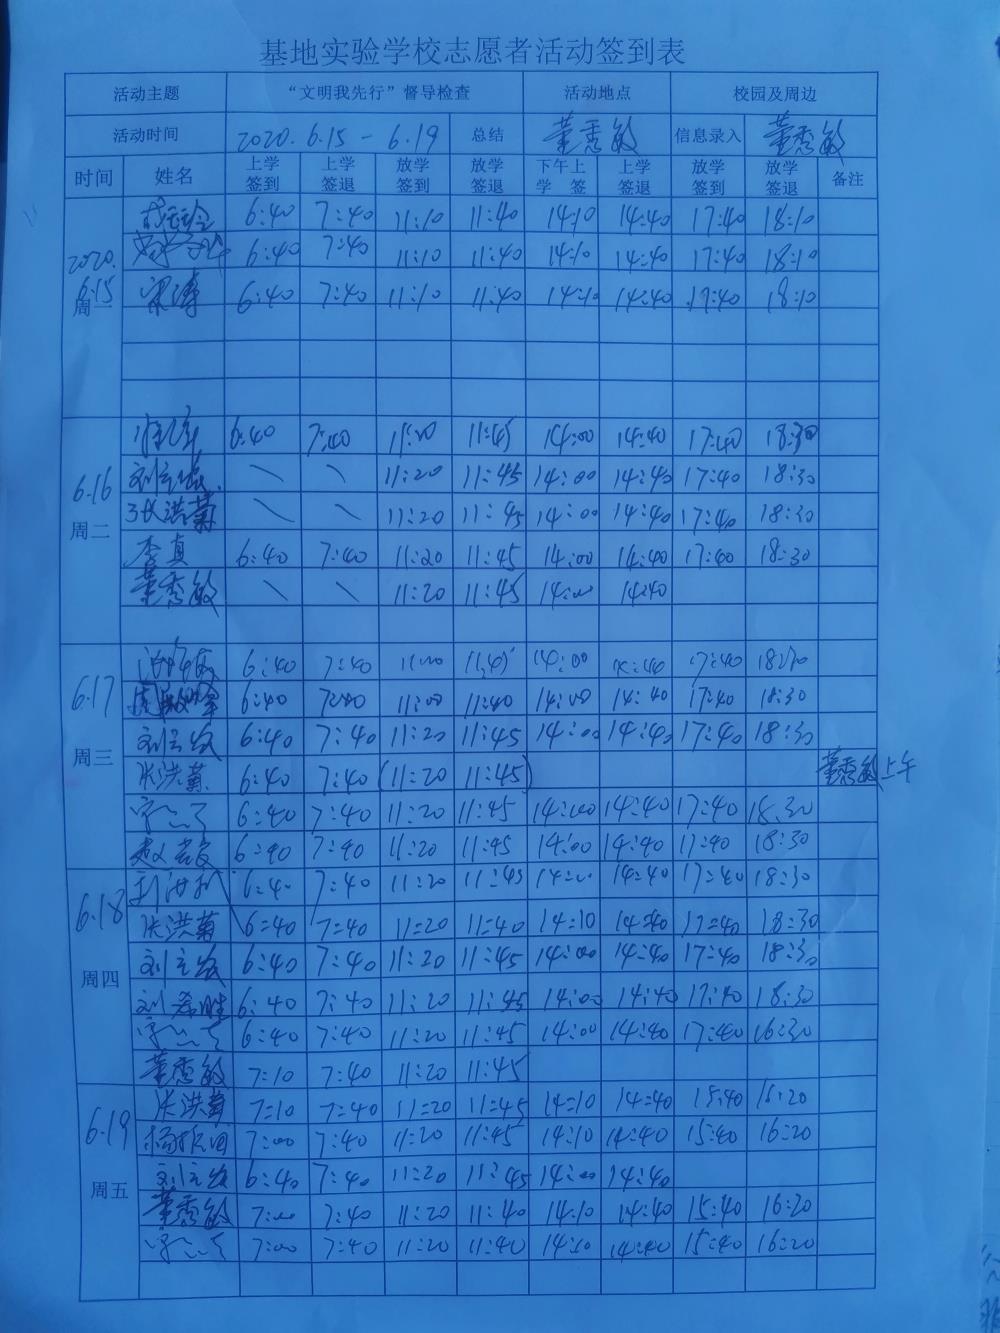 基地实验学校志愿者活动签到表
活动主题 “文明我先行”督导检查 活动地点 校园及周边
活动时间 2020.6.15-6.19 总结 董秀敏 信息录入 董秀敏
时间 姓名 上学签到 上学签退 放学签到 放学签退 下午上学 签 上学签退 放学签到 放学签退 备注
2020.6.15 周一
6:40 7:40 11:10 11:40 14:10 14:40 17:40 18:10
6:40 7:40 11:10 11:40 14:10 14:40 17:40 18:10
宋涛 6:40 7:40 11:10 11:40 14:10 14:40 17:40 18:10
6.16 周二
6:40 7:40 11:45 14:00 14:40 17:40 18:30
\ \ 11:20 11:45 14:00 14:40 17:40 18:30
张洪菊 \ \ 11:20 11:45 14:00 14:40 17:40 18:30
李真 6:40 7:40 11:20 11:45 14:00 14:40 17:40 18:30
董秀敏 \ \ 11:20 11:45 14:00 14:40
6.17 周三
6:40 7:40 14:00 17:40
6:40 7:40 11:00 11:40 14:00 14:40 17:40 18:30
6:40 7:40 11:20 11:45 14:00 14:40 17:40 18:30
张洪菊 6:40 7:40 (11:20 11:45) 董秀敏上午
6:40 7:40 11:20 11:45 14:00 14:40 17:40 18:30
6:40 7:40 11:20 11:45 14:00 14:40 17:40 18:30
6.18 周四
6:40 7:40 11:20 11:45 14:00 14:40 17:40 18:30
张洪菊 6:40 7:40 11:20 11:40 14:10 14:40 17:40 18:30
6:40 7:40 11:20 11:45 14:00 14:40 17:40 18:30
刘希胜 6:40 7:40 11:20 11:45 14:00 14:40 17:40 18:30
6:40 7:40 11:20 11:45 14:00 14:40 17:40 16:30
董秀敏 7:10 7:40 11:20 11:45
6.19 周五
张洪菊 7:10 7:40 11:20 11:45 14:10 14:40
7:00 7:40 11:20 11:45 14:10 14:40 15:40 16:20
6:40 7:40 11:20 11:45 14:00 14:40
董秀敏 7:00 7:40 11:20 11:40 14:10 14:40 15:40 16:20
7:00 7:40 11:20 11:40 14:10 14:40 15:40 16:20